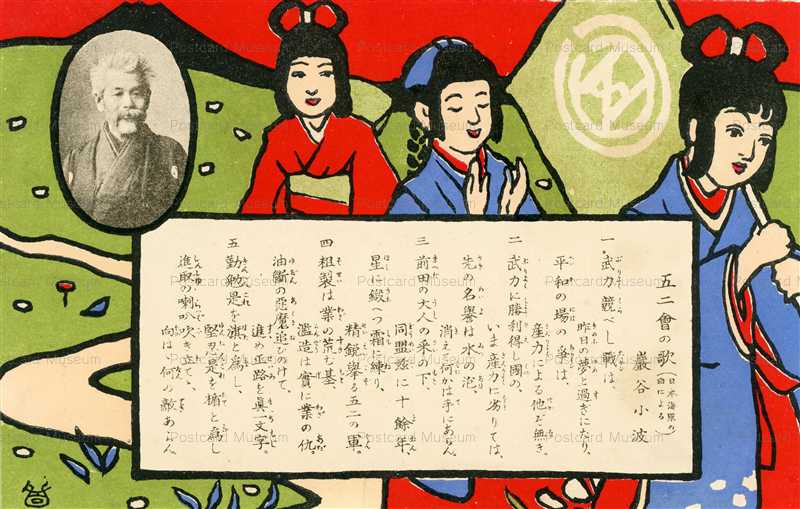 五二會の歌(日本海軍の曲による)
巖谷小波
一 武力競べし戰は、
昨日の夢と過ぎにたり。
平和の場の爭は、
産力による他ぞ無き。
二 武力に勝利得し國の、
いま産力に劣りては、
先の名譽は水の泡、
消えて何かは手にあらん。
三 前田の大人の采の下、
同盟茲に十餘年、
星に鍛へつ霜に練り、
精鋭擧る五二の軍。
四 粗製は業の荒む基、
濫造は實に業の仇。
油斷の惡魔追ひのけて、
進め正路を眞一文字。
五 勤勉是を旗と爲し、
堅忍是を楯と爲し
進取の喇叭吹き立てゝ、
向は何の敵あらん。
Postcard Museum